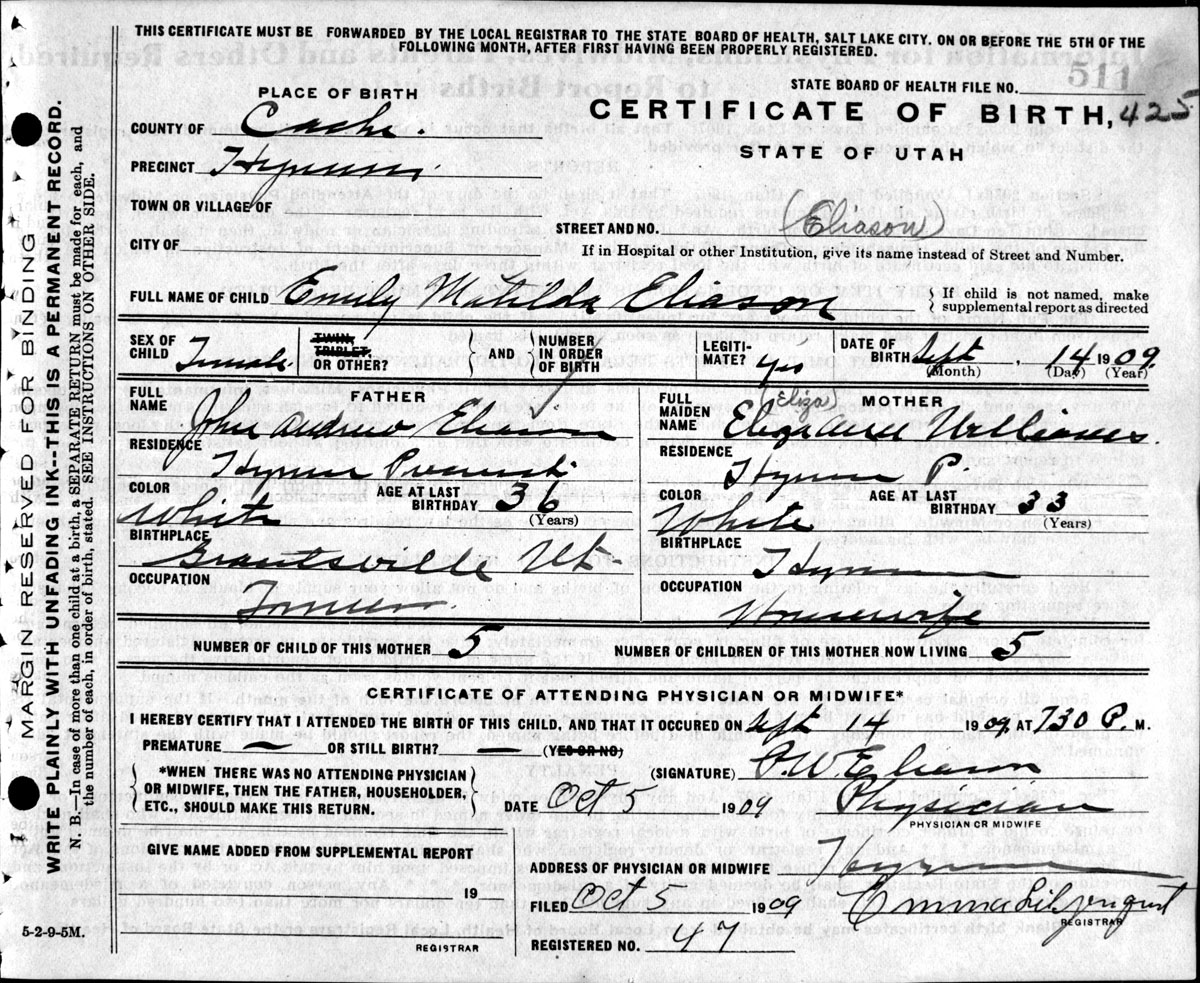 THIS CERTIFICATE MUST BE FORWARDED BY THE LOCAL REGISTRAR TO THE STATE BOARD OF HEALTH, SALT LAKE CITY, ON OR BEFORE THE 5TH OF THE
FOLLOWING MONTH, AFTER FIRST HAVING BEEN PROPERLY REGISTERED.
511
STATE BOARD OF HEALTH FILE NO.
PLACE OF BIRTH
CERTIFICATE OF BIRTH, 425
STATE OF UTAH
COUNTY OF Cache.
PRECINCT Hyrum
TOWN OR VILLAGE OF
STREET AND NO. (Eliason)
CITY OF
If in Hospital or other Institution, give its name instead of Street and Number.
FULL NAME OF CHILD Emily Matilda Eliason
If child is not named, make
supplemental report as directed
SEX OF CHILD Female.
TWIN, TRIPLET, OR OTHER?
AND
NUMBER IN ORDER OF BIRTH
LEGITIMATE? yes
DATE OF BIRTH Sept, 14 1909.
(Month) (Day) (Year)
FATHER
FULL NAME John Andrew Eliason
RESIDENCE Hyrum Precinct
COLOR White
AGE AT LAST BIRTHDAY 36
(Years)
BIRTHPLACE Grantsville Ut.
OCCUPATION Farmer.
MOTHER
FULL MAIDEN NAME (Eliza) Williams.
RESIDENCE Hyrum P.
COLOR White
AGE AT LAST BIRTHDAY 33
(Years)
BIRTHPLACE Hyrum
OCCUPATION Housewife
NUMBER OF CHILD OF THIS MOTHER 5
NUMBER OF CHILDREN OF THIS MOTHER NOW LIVING 5
CERTIFICATE OF ATTENDING PHYSICIAN OR MIDWIFE*
I HEREBY CERTIFY THAT I ATTENDED THE BIRTH OF THIS CHILD, AND THAT IT OCCURRED ON Sept 14 1909, AT 730 P. M.
PREMATURE — OR STILL BIRTH? — (YES OR NO)
*WHEN THERE WAS NO ATTENDING PHYSICIAN
OR MIDWIFE, THEN THE FATHER, HOUSEHOLDER,
ETC., SHOULD MAKE THIS RETURN.
(SIGNATURE) O.W. Eliason
DATE Oct 5 1909 Physician
PHYSICIAN OR MIDWIFE
GIVE NAME ADDED FROM SUPPLEMENTAL REPORT
19
REGISTRAR
ADDRESS OF PHYSICIAN OR MIDWIFE Hyrum
FILED Oct 5 1909 Emma Liljenquist
REGISTRAR
REGISTERED NO. 47
5-2-9-5M.
MARGIN RESERVED FOR BINDING
WRITE PLAINLY WITH UNFADING INK--THIS IS A PERMANENT RECORD.
N. B.—In case of more than one child at a birth, a SEPARATE RETURN must be made for each, and
the number of each, in order of birth, stated. SEE INSTRUCTIONS ON OTHER SIDE.